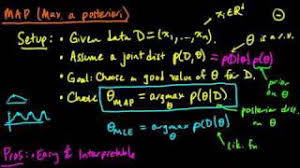 MAP (Max. a posteriori)
x_i ∈ ℝ^d
Setup: • Given data D = (x_1, ..., x_n),
θ is a r.v.
• Assume a joint dist p(D, θ) = p(D|θ) p(θ)
• Goal: Choose a good value of θ for D.
prior on θ
• Choose θ_MAP = argmax_θ p(θ|D)
posterior on θ
θ_MLE = argmax_θ p(D|θ)
lik. fn
Pros: • Easy & Interpretable